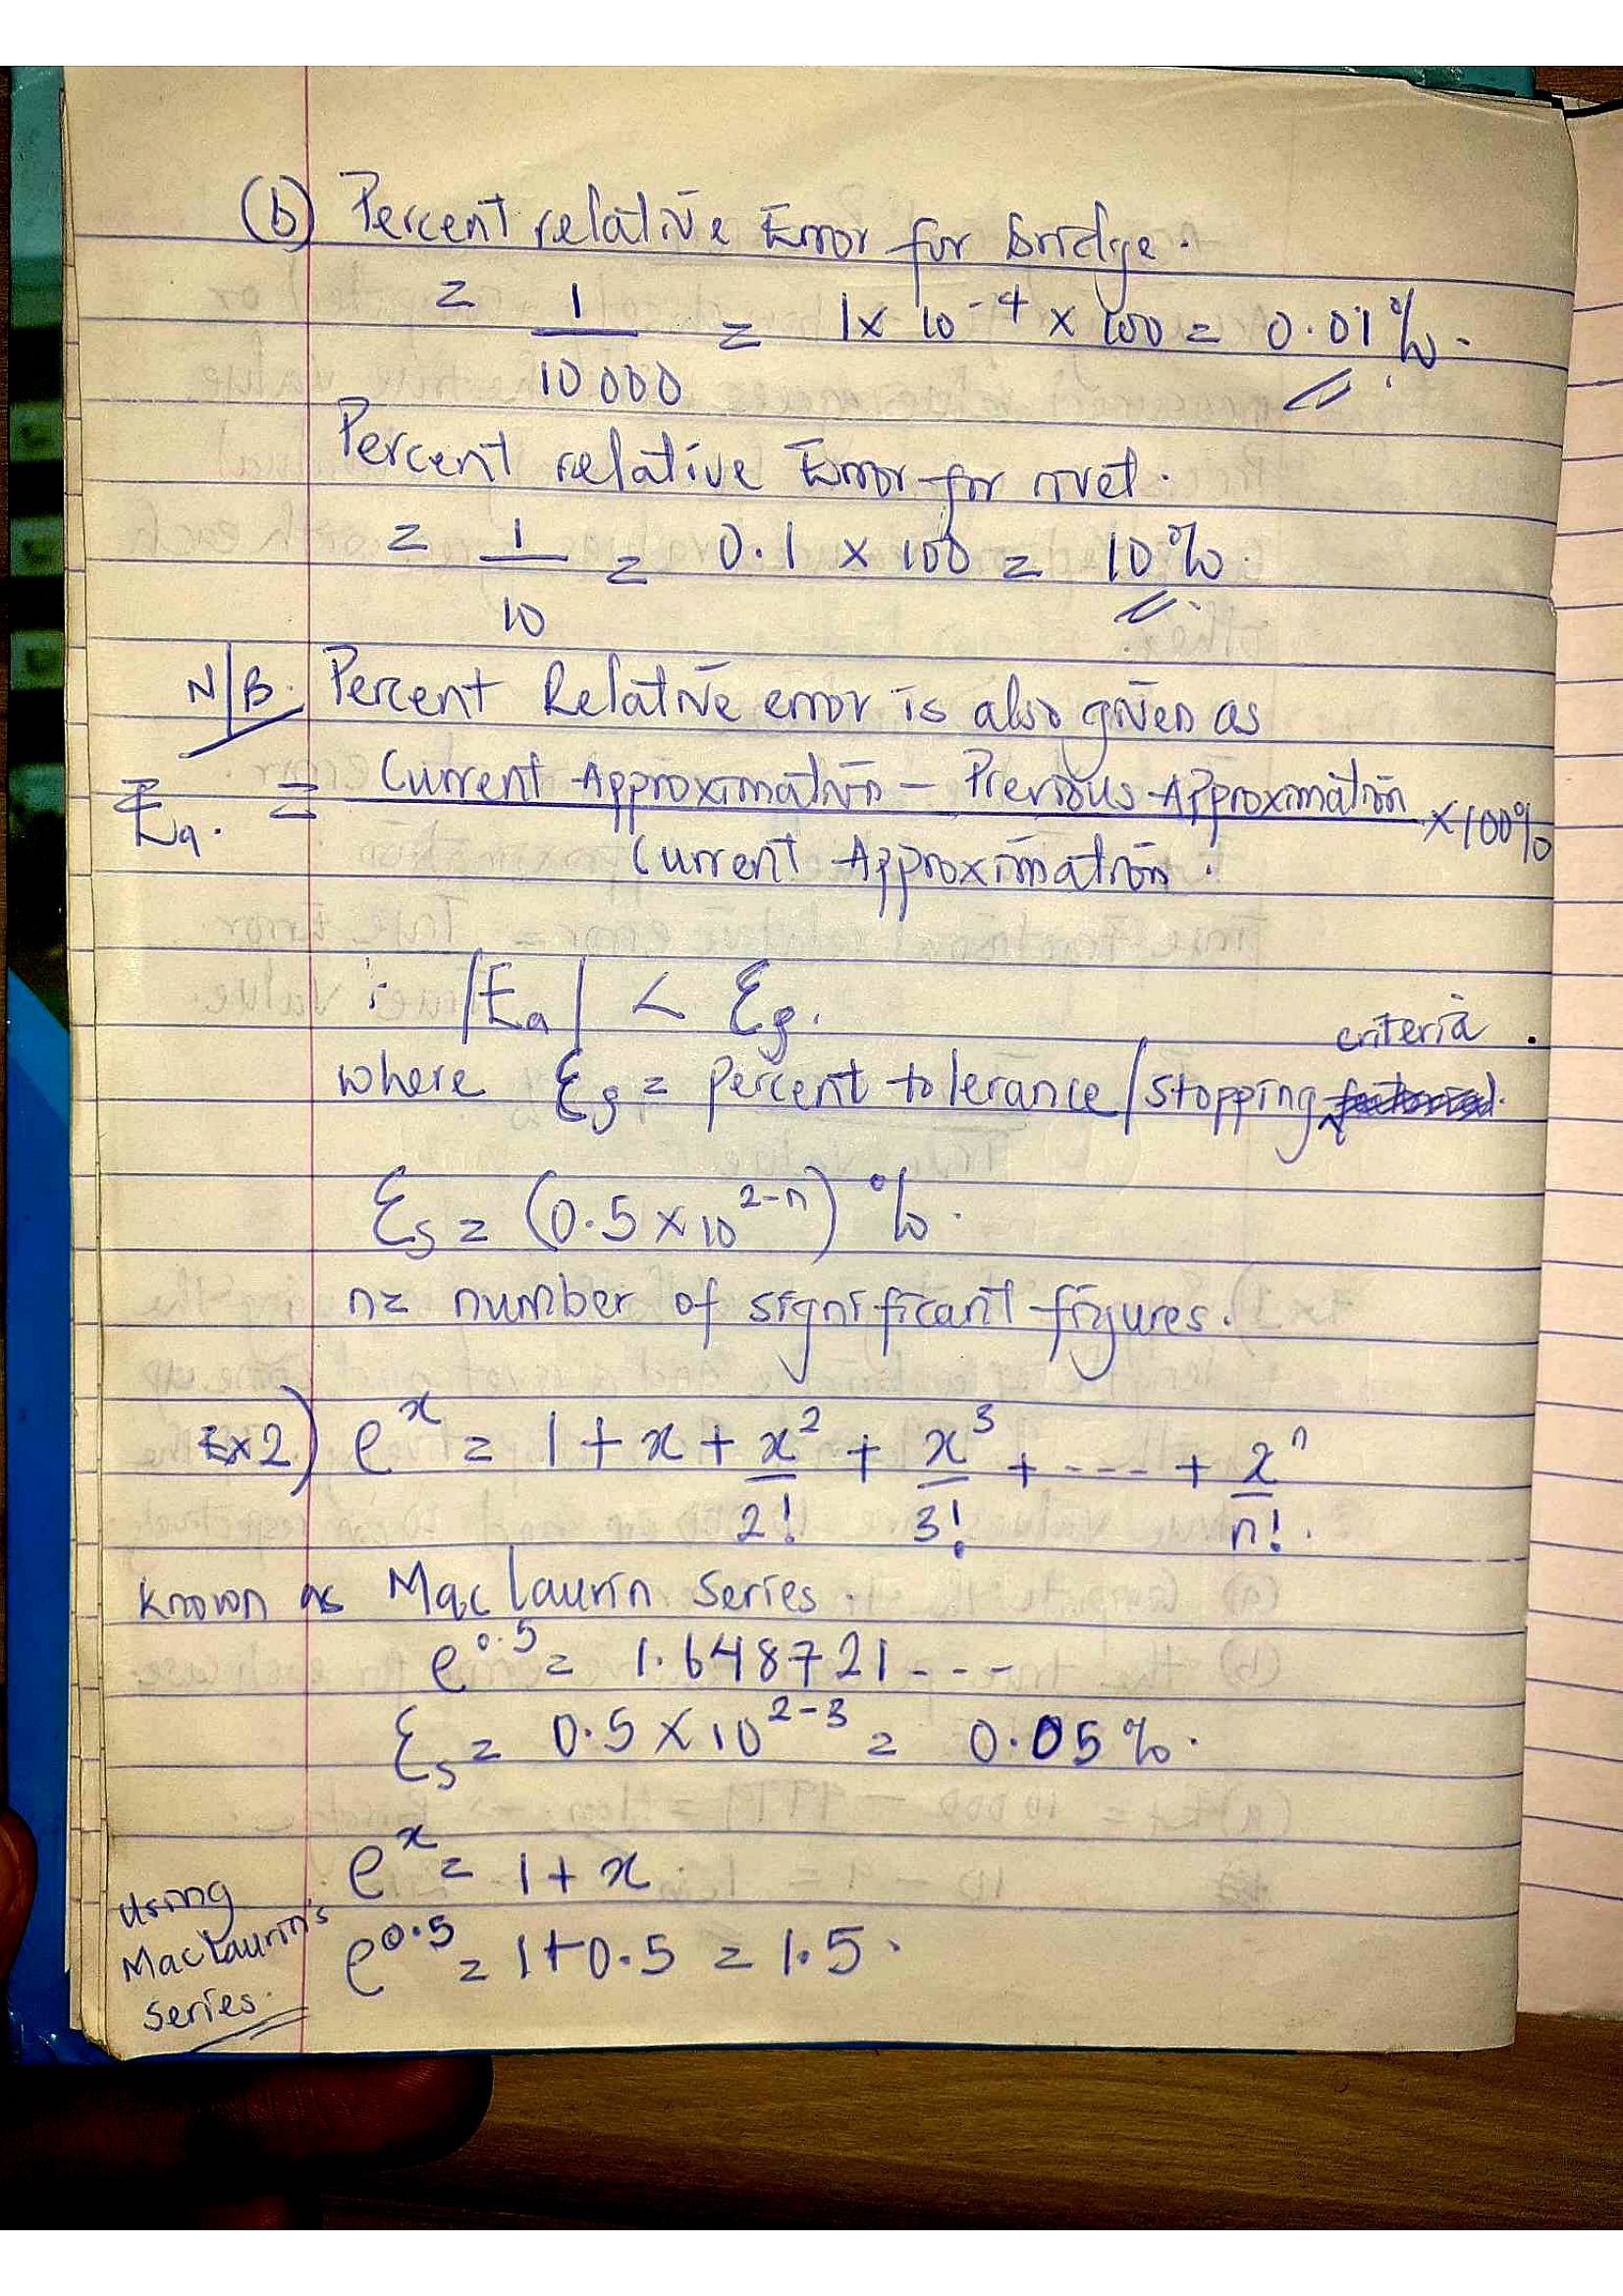 (b) Percent relative Error for bridge.
= 1/10000 = 1x 10^-4 x 100 = 0.01%.
Percent relative Error for rivet.
= 1/10 = 0.1 x 100 = 10%.
N/B. Percent Relative error is also given as
Ea. = Current Approximation - Previous Approximation x100%
Current Approximation.
: |Ea| < Es.
criteria.
where Es = percent tolerance/stopping
Es = (0.5 x 10^2-n) %.
n= number of significant figures.
Ex2) e^x = 1 + x + x^2/2! + x^3/3! + --- + x^n/n!.
known as Maclaurin Series.
e^0.5 = 1.648721---
Es = 0.5 x 10^2-3 = 0.05%.
e^x = 1 + x
Using Maclaurin's series.
e^0.5 = 1+0.5 = 1.5.